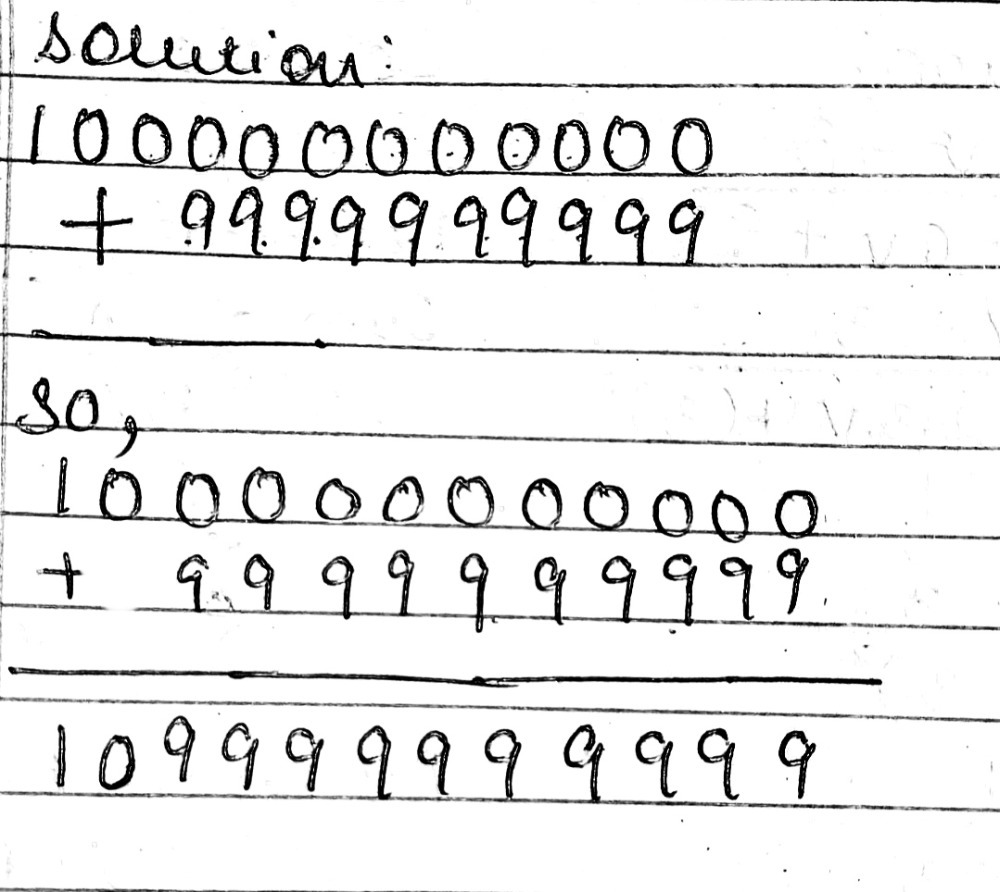 solution:
100000000000
+ 9999999999
so,
100000000000
+ 9999999999
109999999999